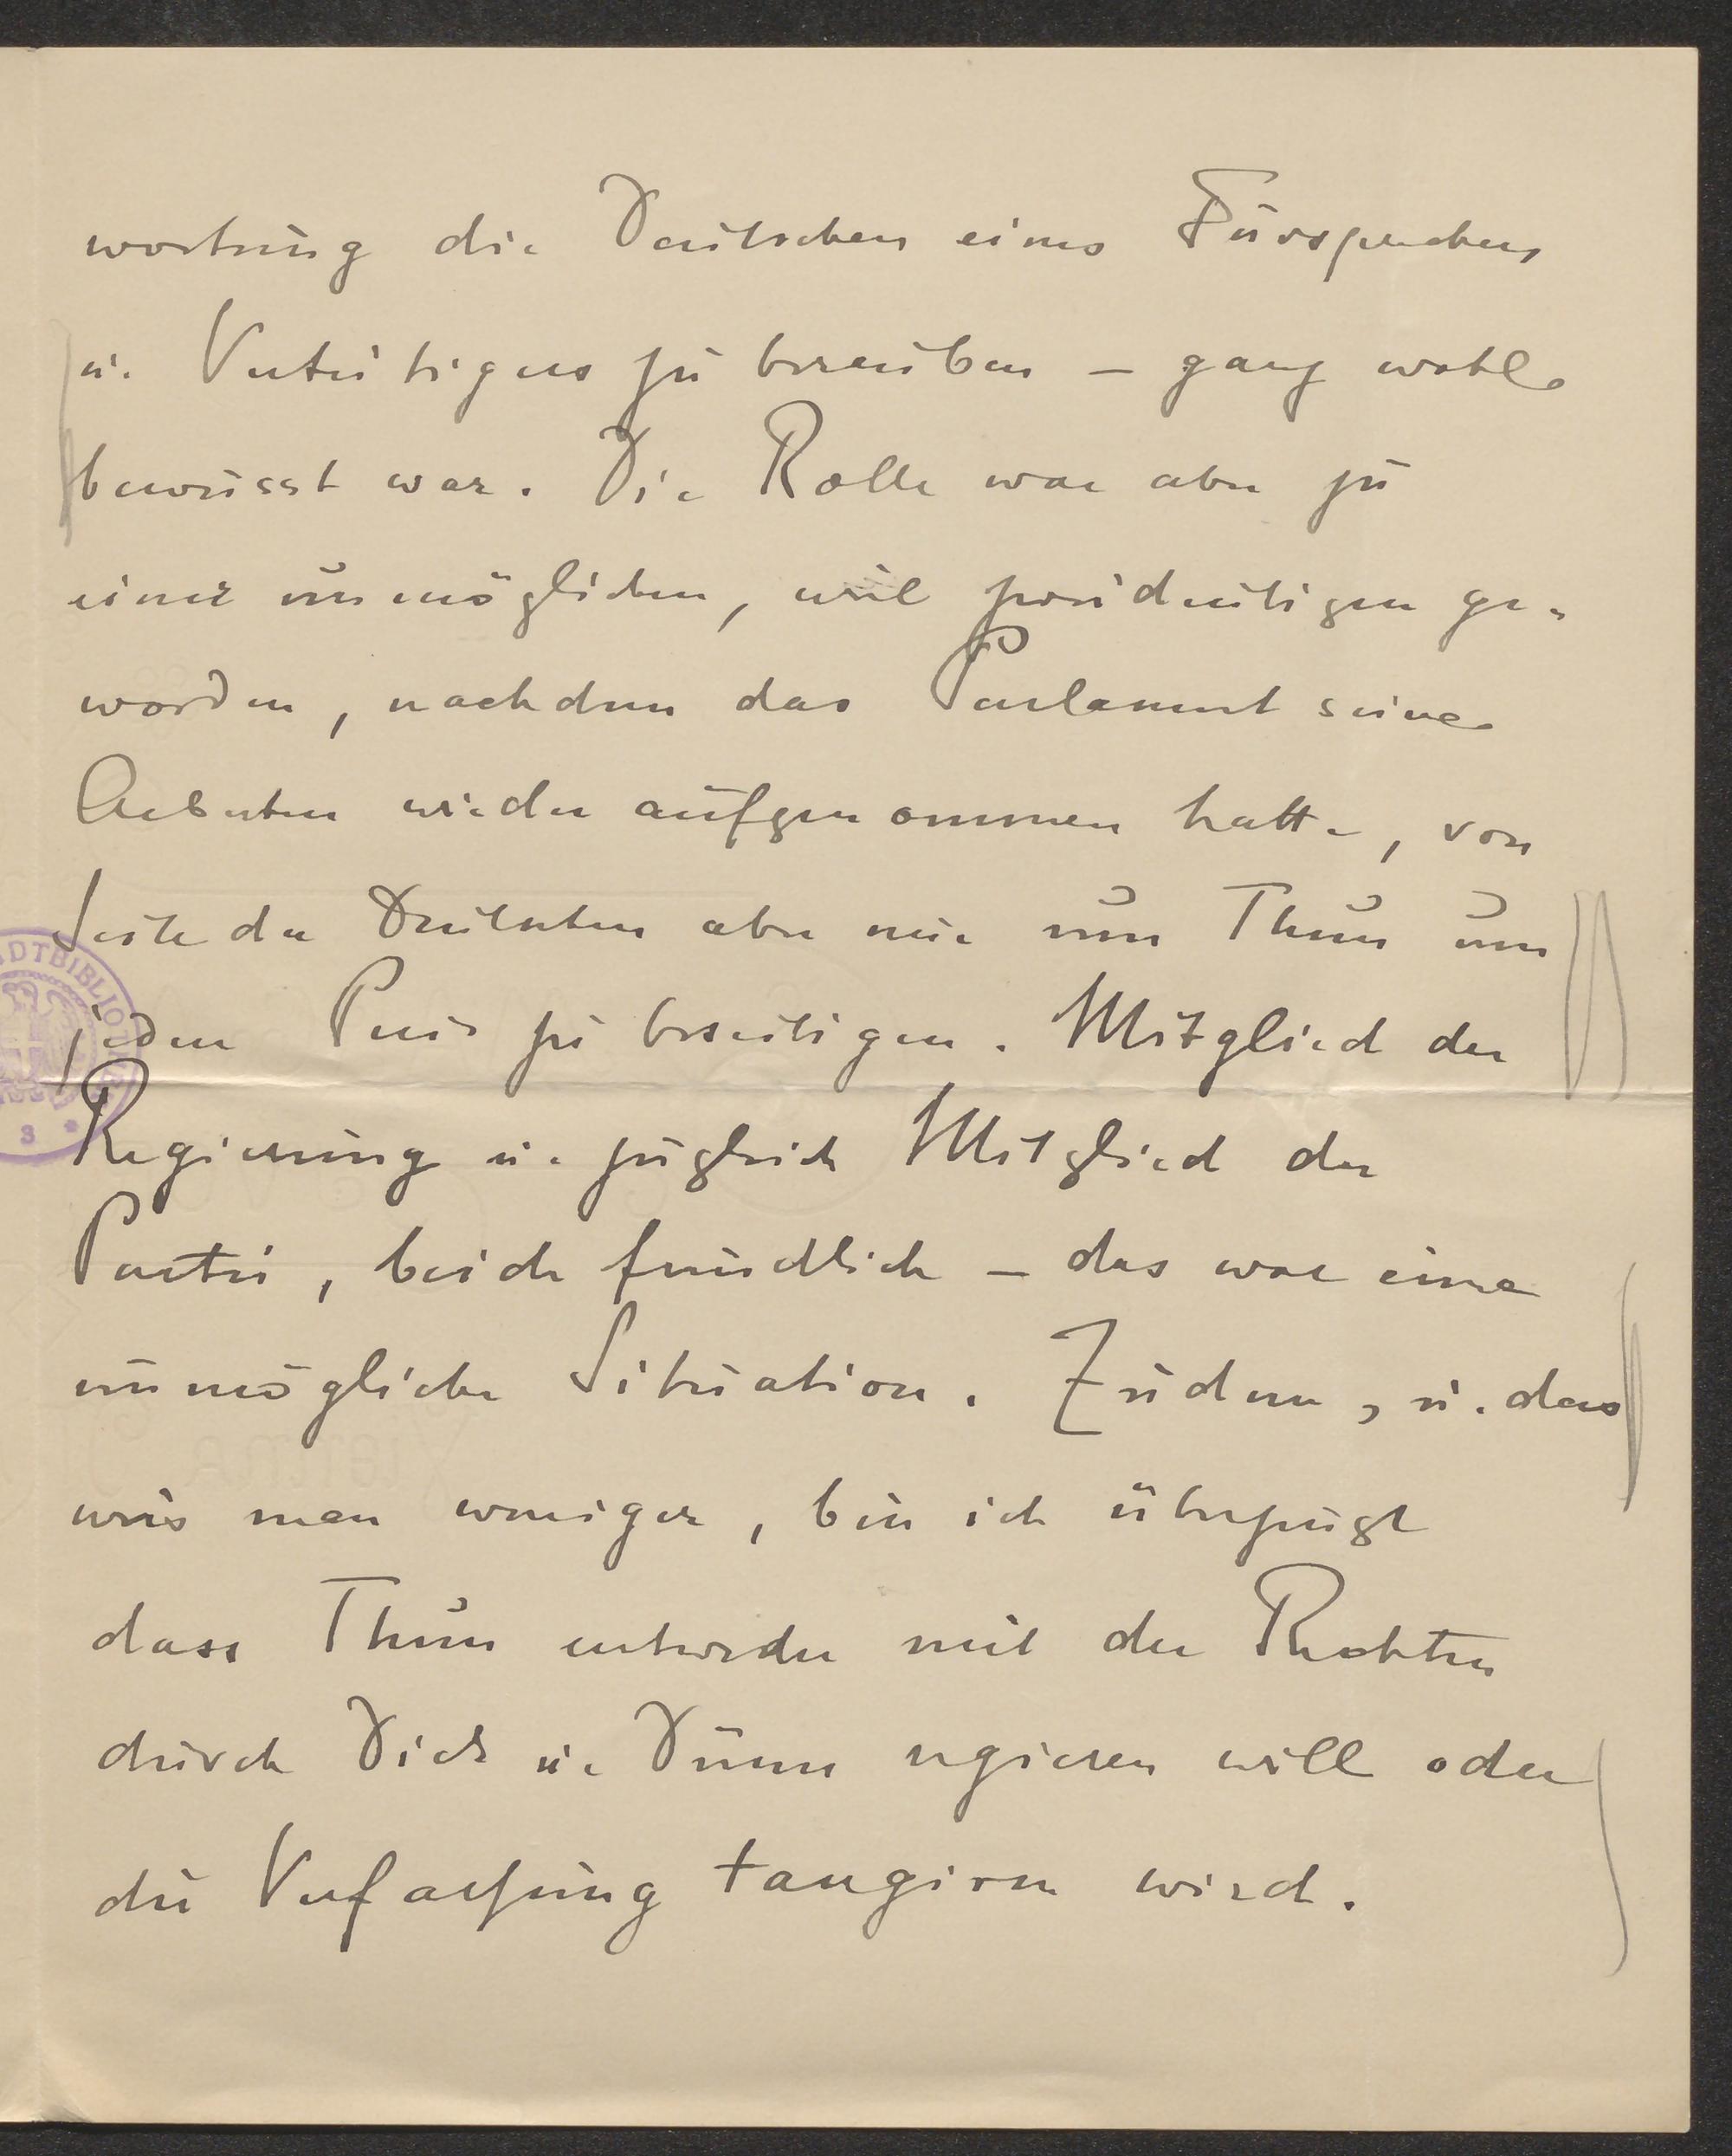 wortung die Deutschen eines Fürsprechers
u. Verteidigers zu berauben – ganz wohl
bewusst war. Die Rolle war aber zu
einer unmöglichen, weil zweideutigen ge-
worden, nachdem das Parlament seine
Arbeiten wieder aufgenommen hatte, von
Seite der Deutschen aber nur um Thun um
jeden Preis zu beseitigen. Mitglied der
Regierung u. zugleich Mitglied der
Partei, beide feindlich – das war eine
unmögliche Situation. Zudem, u. das
weis man weniger, bin ich überzeugt
dass Thun entweder mit der Rechten
durch Dick u. Dünn regieren will oder
die Verfassung tangiren wird.
DTBIBLIOT